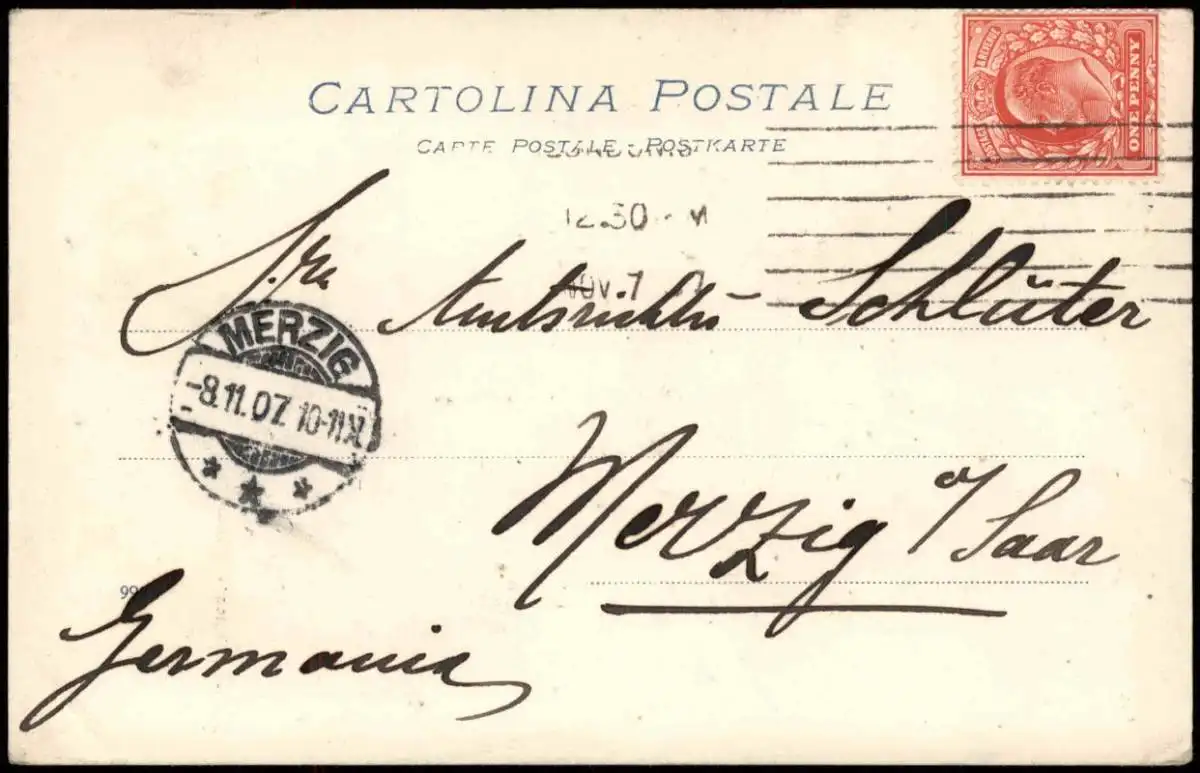 CARTOLINA POSTALE
CARTE POSTALE - POSTKARTE
POSTAGE REVENUE
ONE PENNY
12.30
NOV. 7 07
Schlüter
MERZIG
-8.11.07. 10-11
Merzig a/Saar
99
Germania